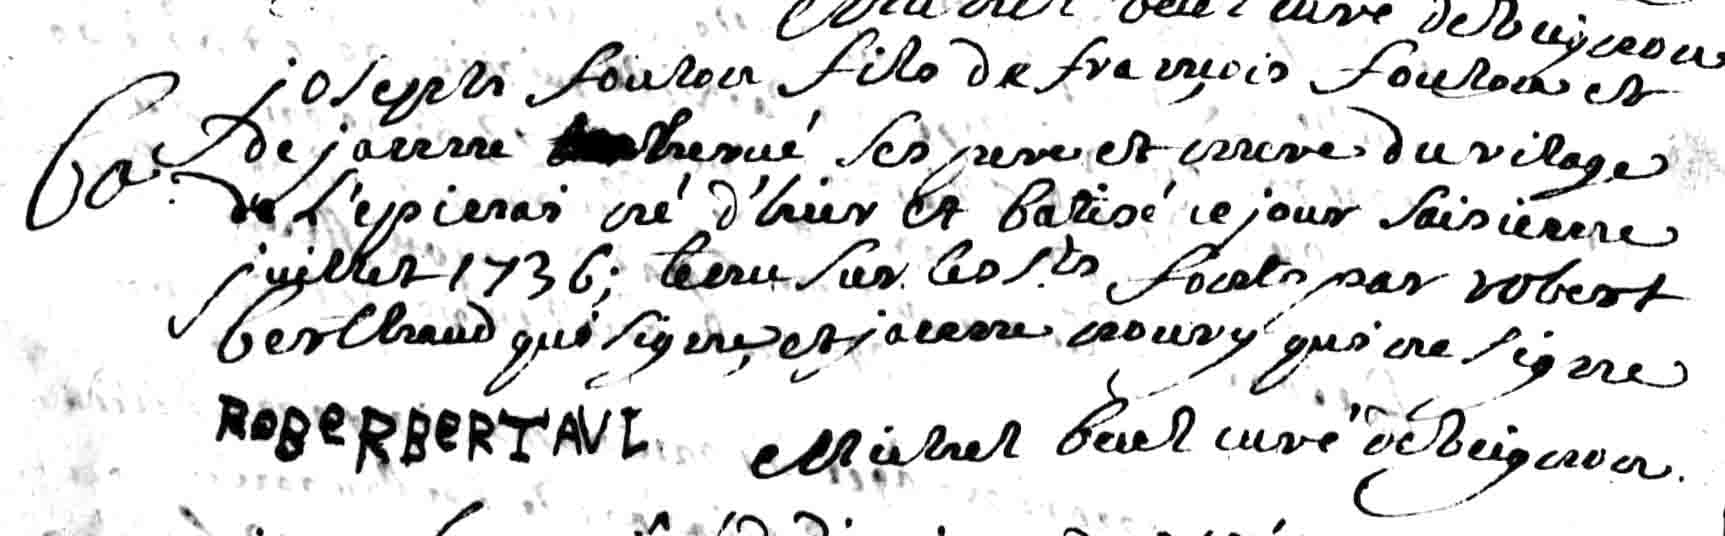 curé de beignon
joseph foulon fils de françois foulon et
ba. de janne hervé ses pere et mere du vilage
de l'epinai né d'hier et batisé ce jour saisieme
juillet 1736; tenu sur les sts fonts par robert
berthaud qui signe, et janne noury qui ne signe
ROBERBERTAUL
Michel beul curé de beignon.